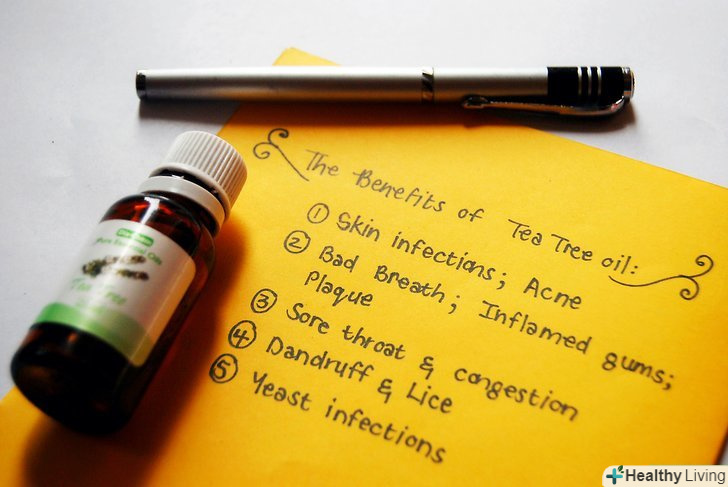 The Benefits of Tea Tree oil:
① Skin infections; Acne
② Bad Breath; Inflamed gums;
Plaque
③ Sore throat & congestion
④ Dandruff & Lice
⑤ Yeast infections
Tea Tree
Healthy Living